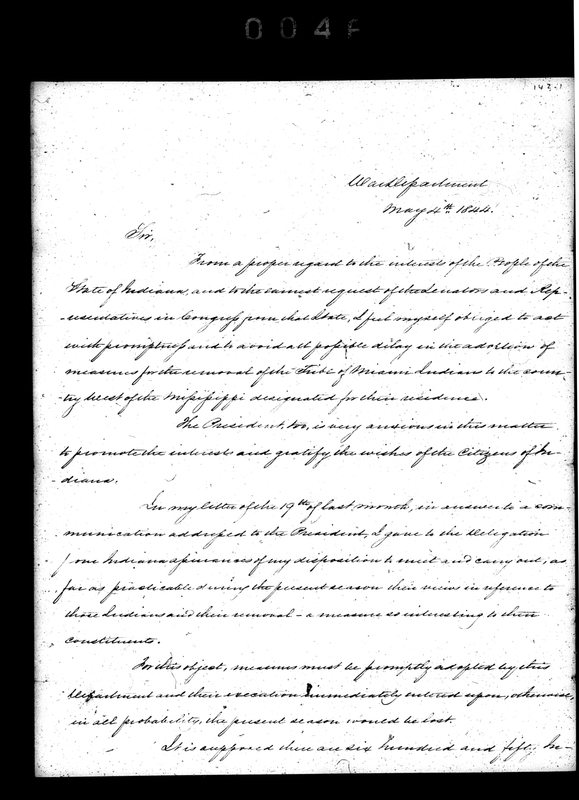 004
147-1
War Department
May 4th 1844.
Sir,
From a proper regard to the interests of the People of the
State of Indiana, and to the earnest request of the Senators and Rep-
-resentatives in Congress from that State, I feel myself obliged to act
with promptness and to avoid all possible delay in the adoption of
measures for the removal of the Tribe of Miami Indians to the coun-
-try West of the Mississippi designated for their residence.
The President, too, is very anxious in this matter
to promote the interests and gratify the wishes of the Citizens of In-
-diana.
In my letter of the 19th of last month, in answer to a com-
munication addressed to the President, I gave to the Delegation
from Indiana assurances of my disposition to meet and carry out, as
far as practicable during the present season their views in reference to
those Indians and their removal - a measure so interesting to their
constituents.
For this object, measures must be promptly adopted by this
Department and their execution immediately entered upon, otherwise,
in all probability, the present season would be lost.
It is supposed there are six hundred and fifty In-